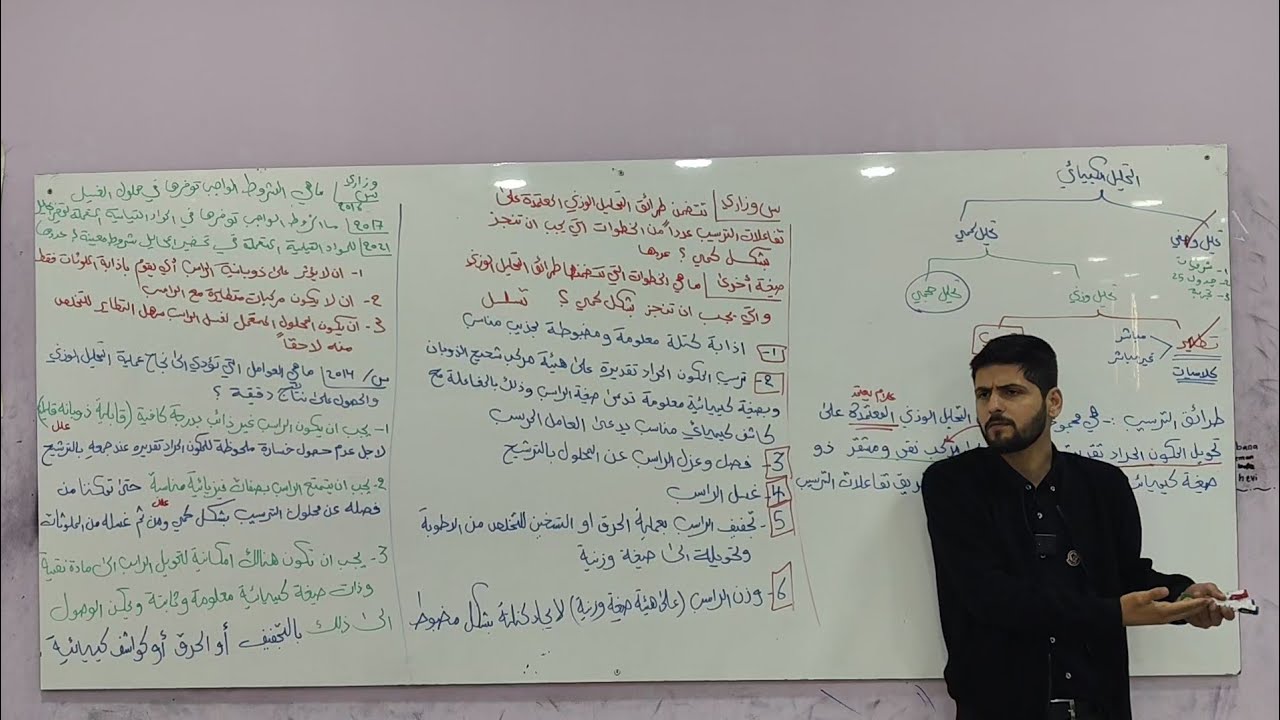 التحليل الكيميائي
تحليل كمي
تحليل
تحليل حجمي
تحليل وزني
2- جدول 25
3- تجربة
تطاير
مباشر
غير مباشر
كلاسات
علام يعتمد
طرائق الترسيب :- هي التحليل الوزني المعتمدة على
تحويل المكون المراد مركب نقي ومستقر ذو
صيغة كيميائية تفاعلات الترسيب
س وزاري / تتضمن طرائق التحليل الوزني المعتمدة على
تفاعلات الترسيب عدداً من الخطوات التي يجب ان تنجز
بشكل كمي ؟ عددها
صيغة أخرى / ما هي الخطوات التي تتضمنها طرائق التحليل الوزني
والتي يجب ان تنجز بشكل كمي ؟ تسلسل
1- اذابة كتلة معلومة ومضبوطة بمذيب مناسب
2- ترسب المكون المراد تقديره على هيئة مركب شحيح الذوبان
وبصيغة كيميائية معلومة تدعى صيغة الراسب وذلك بالمفاعلة مع
كاشف كيميائي مناسب يدعى العامل المرسب
3- فصل وعزل الراسب عن المحلول بالترشيح
4- غسل الراسب
5- تجفيف الراسب بعملية الحرق او التسخين للتخلص من الرطوبة
وتحويله الى صيغة وزنية
6- وزن الراسب (على هيئة صيغة وزنية) لايجاد كتلته بشكل مضبوط
وزاري س / 2016 ما هي الشروط الواجب توفرها في محلول الغسيل
2017 / ما الشروط الواجب توفرها في المواد القياسية المستعملة
2021 / للمواد القياسية المستعملة في تحضير المحاليل شروط معينة ؟ عددها
1- ان لا يؤثر على ذوبانية الراسب أي يقوم باذابة الملوثات فقط
2- ان لا يكون مركبات متطايرة مع الراسب
3- ان يكون المحلول المستعمل لغسل الراسب سهل التطاير للتخلص
منه لاحقاً
س / 2014 / ما هي العوامل التي تؤدي الى نجاح عملية التحليل الوزني
والحصول على نتائج دقيقة ؟
1- يجب ان يكون الراسب غير ذائب بدرجة كافية (قابلية ذوبانه قليلة)
علل
لاجل عدم حصول خسارة ملحوظة للمكون المراد تقديره عند جمعه بالترشيح
2- يجب ان يتمتع الراسب بصفات فيزيائية مناسبة حتى تمكننا من
علل
فصله عن محلول الترسيب بشكل كمي ومن ثم غسله من الملوثات
3- يجب ان تكون هنالك امكانية لتحويل الراسب الى مادة نقية
وذات صيغة كيميائية معلومة وثابتة ويمكن الوصول
الى ذلك بالتجفيف أو الحرق أو كواشف كيميائية